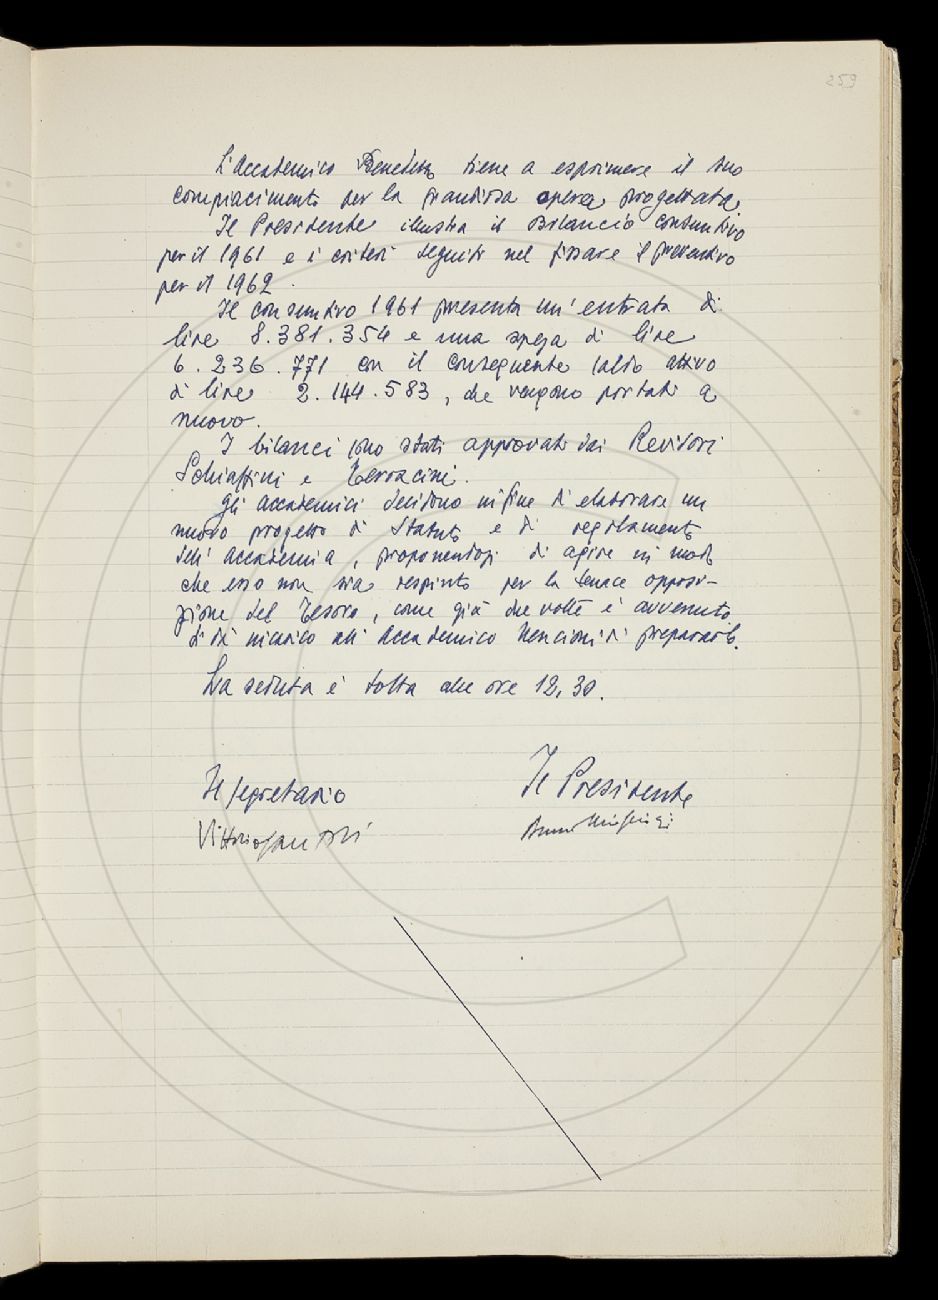 259
L'Accademico Benedetto tiene a esprimere il suo
compiacimento per la grandiosa opera progettata.
Il Presidente illustra il Bilancio consuntivo
per il 1961 e i criteri seguiti nel fissare il preventivo
per il 1962.
Il consuntivo 1961 presenta un'entrata di
lire 8.381.354 e una spesa di lire
6.236.771 con il conseguente saldo attivo
di lire 2.144.583, che vengono portati a
nuovo.
I bilanci sono stati approvati dai Revisori
Schiaffini e Terracini.
Gli accademici decidono infine di elaborare un
nuovo progetto di Statuto e di regolamento
dell'accademia, proponendosi di agire in modo
che esso non sia respinto per la tenace opposi-
zione del Tesoro, come già due volte è avvenuto.
Si dà incarico all'Accademico Nencioni di prepararlo.
La seduta è tolta alle ore 12,30.
Il segretario
Il Presidente
Vittorio Santoli
Bruno Migliorini